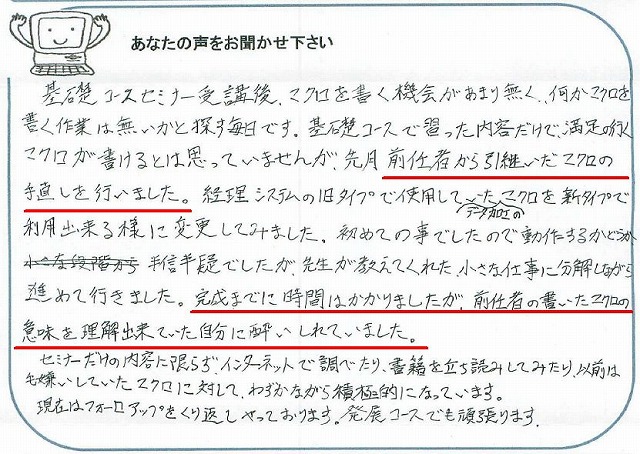 あなたの声をお聞かせ下さい
基礎コースセミナー受講後、マクロを書く機会があまり無く、何かマクロを
書く作業は無いかと探す毎日です。基礎コースで習った内容だけで、満足の行く
マクロが書けるとは思っていませんが、先月前任者から引継いだマクロの
手直しを行いました。経理システムの旧タイプで使用していたマクロを新タイプで
データ加工の
利用出来る様に変更してみました。初めての事でしたので動作するかどうか
小さな段階から 半信半疑でしたが、先生が教えてくれた、小さな仕事に分解しながら
進めて行きました。完成までに時間はかかりましたが、前任者の書いたマクロの
意味を理解出来ていた自分に酔いしれていました。
セミナーだけの内容に限らず、インターネットで調べたり、書籍を立ち読みしてみたり、以前は
毛嫌いしていたマクロに対して、わずかながら積極的になっています。
現在はフォーロアップをくり返しやっております。発展コースでも頑張ります。